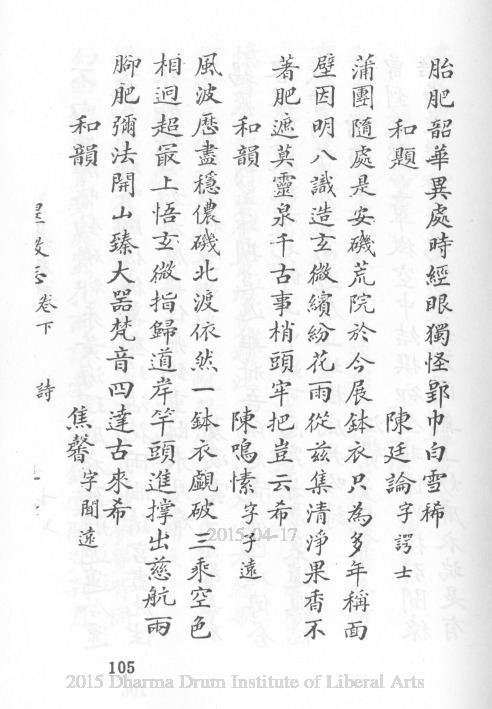 胎肥韶華異處時經眼獨怪郢巾白雪稀
和題 陳廷論字諤士
蒲團隨處是安磯荒院於今展鉢衣只為多年稱面
壁因明八識造玄微繽紛花雨從茲集清淨果香不
著肥遮莫靈泉千古事梢頭牢把豈云希
和韻 陳鳴愫字子遠
風波歷盡穩儂磯北渡依然一鉢衣覷破三乘空色
相迥超最上悟玄微指歸道岸竿頭進撐出慈航雨
腳肥彌法開山臻大器梵音四達古來希
和韻 焦馨字聞遠
卷下 詩
105
2015-04-17
2015 Dharma Drum Institute of Liberal Arts